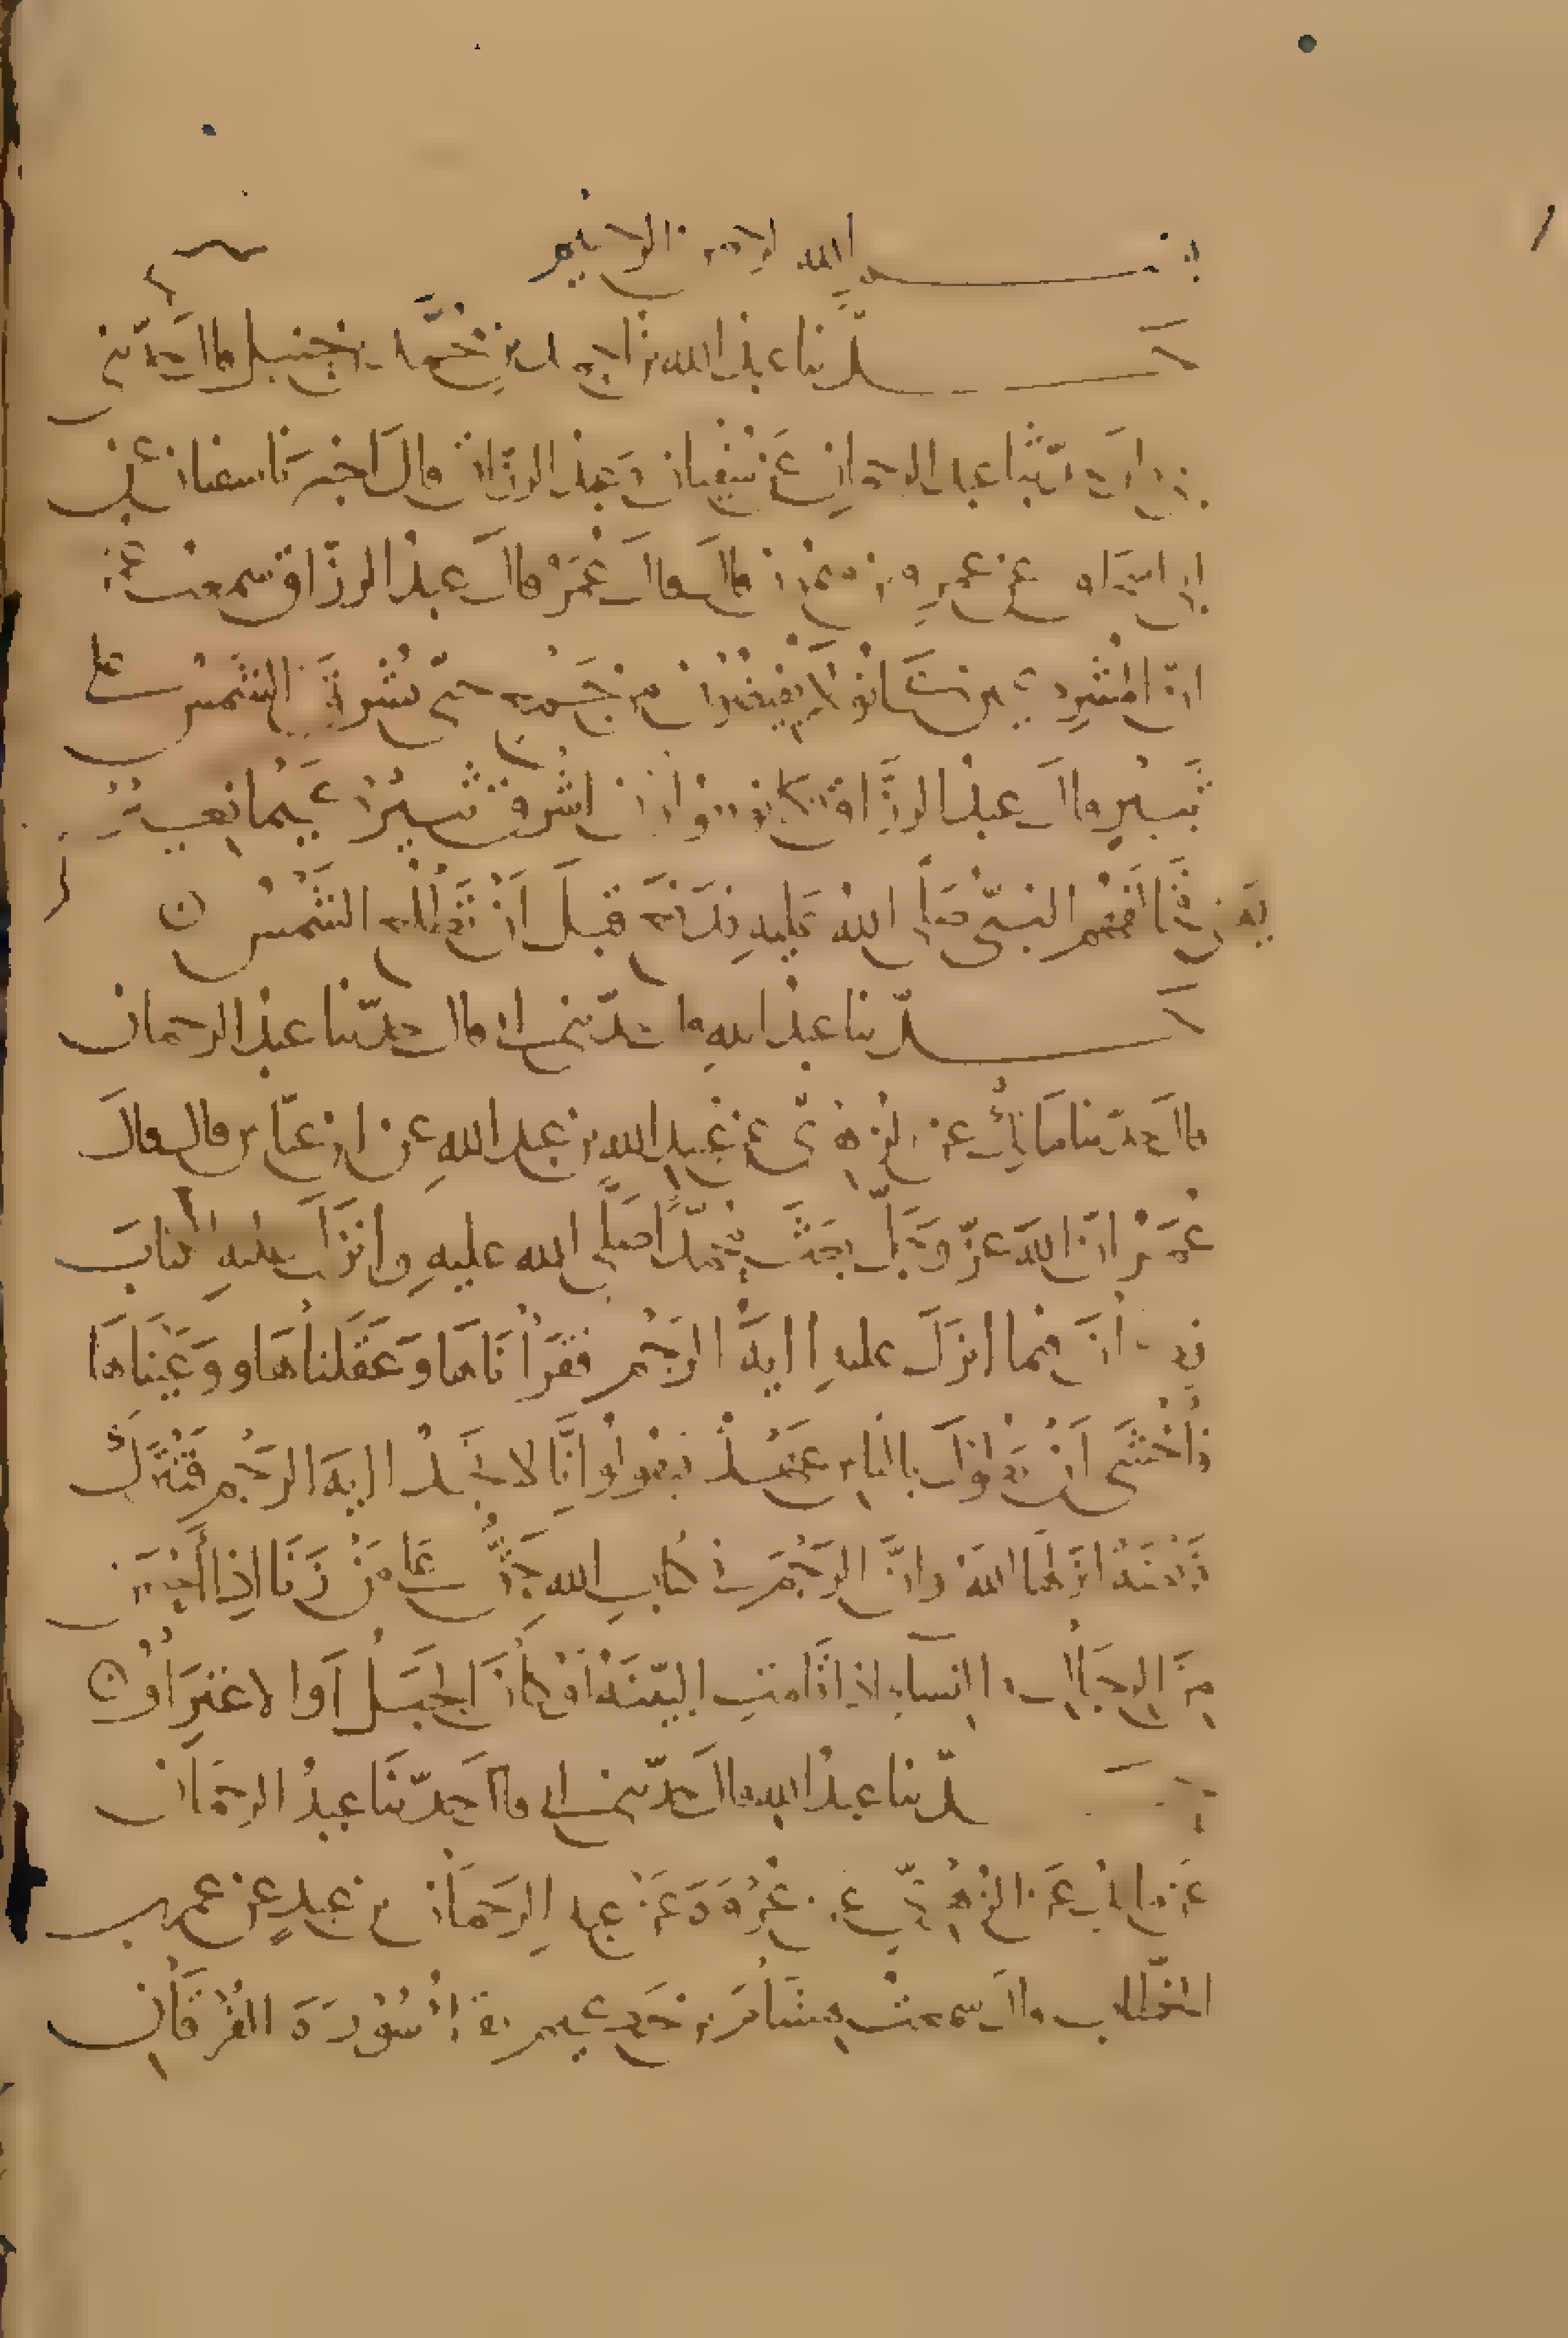 بسم الله الرحمن الرحيم
حدثنا عبد الله بن احمد بن محمد بن حنبل قال حدثني
ابي قال حدثنا عبد الرحمان عن سفيان وعبد الرزاق قال اخبرنا سفيان عن
ابي اسحاق عن عمرو بن ميمون قال قال عمر قال عبد الرزاق سمعت عمر
ان المشركين كانوا لا يفيضون من جمع حتى تشرق الشمس على
ثبير قال عبد الرزاق وكانوا يقولون اشرق ثبير كيما نغير
يعني فخالفهم النبي صلى الله عليه فدفع قبل ان تطلع الشمس
حدثنا عبد الله قال حدثني ابي قال حدثنا عبد الرحمان
قال حدثنا مالك عن الزهري عن عبيد الله بن عبد الله عن ابن عباس قال قال
عمر ان الله عز وجل بعث محمدا صلى الله عليه وانزل عليه الكتاب
فكان فيما انزل عليه اية الرجم فقرأناها وعقلناها ووعيناها
فأخشى ان يطول بالناس عهد فيقولوا انا لا نجد اية الرجم فتترك
فريضة انزلها الله وان الرجم في كتاب الله حق على من زنا اذا احصن
من الرجال والنساء اذا قامت البينة او كان الحبل او الاعتراف
حدثنا عبد الله قال حدثني ابي قال حدثنا عبد الرحمان
عن مالك عن الزهري عن عروة وعن عبد الرحمان بن عبد عن عمر بن
الخطاب قال سمعت هشام بن حكيم يقرأ سورة الفرقان